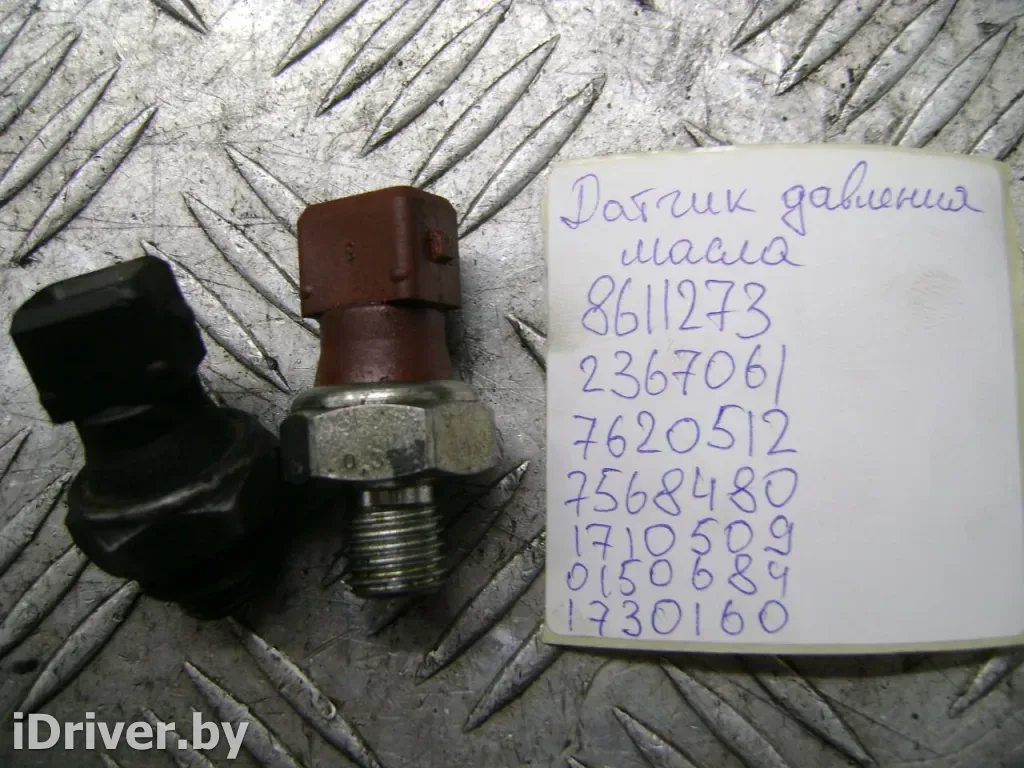 Датчик давления
масла
8611273
2367061
7620512
7568480
1710509
0150684
1730160
iDriver.by